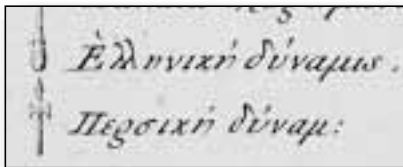 Ἑλληνικὴ δύναμις.
Περσικὴ δύναμ: